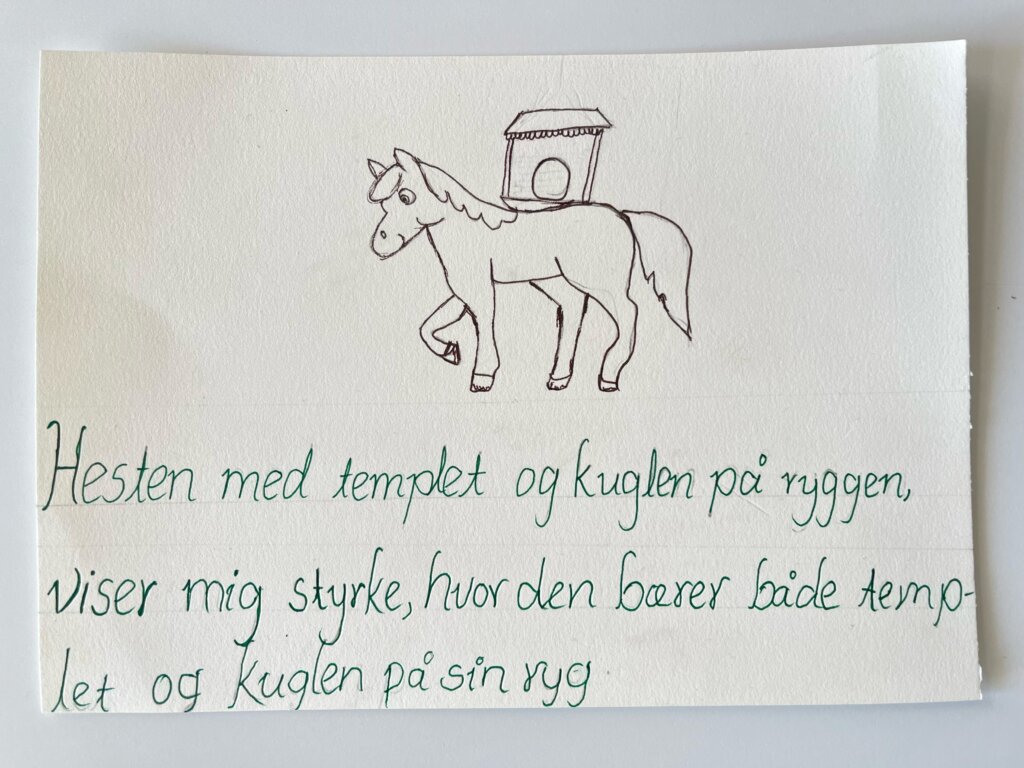 Hesten med templet og kuglen på ryggen,
viser mig styrke, hvor den bærer både temp-
let og kuglen på sin ryg